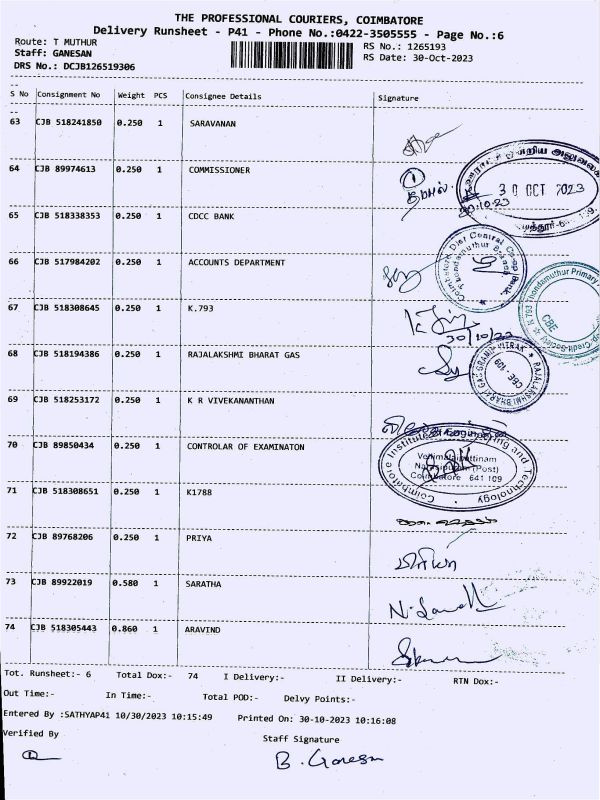 THE PROFESSIONAL COURIERS, COIMBATORE
Delivery Runsheet - P41 - Phone No.:0422-3505555 - Page No.:6
Route: T MUTHUR
Staff: GANESAN
DRS No.: DCJB126519306
RS No.: 1265193
RS Date: 30-Oct-2023
S No Consignment No Weight PCS Consignee Details Signature
63 CJB 518241850 0.250 1 SARAVANAN
64 CJB 89974613 0.250 1 COMMISSIONER
30 OCT 2023
30.10.23
65 CJB 518338353 0.250 1 CDCC BANK
66 CJB 517984202 0.250 1 ACCOUNTS DEPARTMENT
Coimbatore Dist Central Co-op Bank.
Thondamuthur Branch
67 CJB 518308645 0.250 1 K.793
30/10/23
K.793 Thondamuthur Primary
Co-op-Credit-Society
CBE
68 CJB 518194386 0.250 1 RAJALAKSHMI BHARAT GAS
RAJALAKSHMI BHARAT GAS GRAMIN VITRAK
CBE - 109
69 CJB 518253172 0.250 1 K R VIVEKANANTHAN
70 CJB 89850434 0.250 1 CONTROLAR OF EXAMINATON
Coimbatore Institute of Engineering and Technology
Vellimalaipattinam
Narasipuram (Post)
Coimbatore 641 109
71 CJB 518308651 0.250 1 K1788
72 CJB 89768206 0.250 1 PRIYA
பிரியா
73 CJB 89922019 0.580 1 SARATHA
74 CJB 518305443 0.860 1 ARAVIND
Tot. Runsheet:- 6 Total Dox:- 74 I Delivery:- II Delivery:- RTN Dox:-
Out Time:- In Time:- Total POD:- Delvy Points:-
Entered By :SATHYAP41 10/30/2023 10:15:49 Printed On: 30-10-2023 10:16:08
Verified By
Staff Signature
B. Ganesan